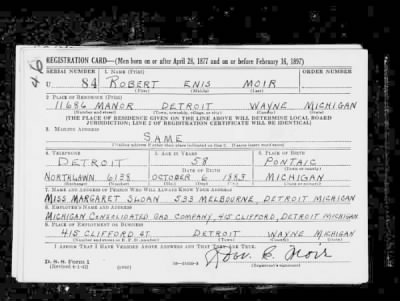 REGISTRATION CARD—(Men born on or after April 28, 1877 and on or before February 16, 1897)
SERIAL NUMBER 1. NAME (Print) ORDER NUMBER
U 84 ROBERT ENIS MOIR
(First) (Middle) (Last)
2. PLACE OF RESIDENCE (Print)
11686 MANOR DETROIT WAYNE MICHIGAN
(Number and street) (Town, township, village, or city) (County) (State)
[THE PLACE OF RESIDENCE GIVEN ON THE LINE ABOVE WILL DETERMINE LOCAL BOARD
JURISDICTION; LINE 2 OF REGISTRATION CERTIFICATE WILL BE IDENTICAL]
3. MAILING ADDRESS
SAME
[Mailing address if other than place indicated on line 2. If same insert word same]
4. TELEPHONE 5. AGE IN YEARS 6. PLACE OF BIRTH
DETROIT 58 PONTAIC
DATE OF BIRTH (Town or county)
NORTHLAWN 6138 OCTOBER 6 1883 MICHIGAN
(Exchange) (Number) (Mo.) (Day) (Yr.) (State or country)
7. NAME AND ADDRESS OF PERSON WHO WILL ALWAYS KNOW YOUR ADDRESS
MISS MARGARET SLOAN 533 MELBOURNE, DETROIT MICHIGAN
8. EMPLOYER'S NAME AND ADDRESS
MICHIGAN CONSALIDATED GAS COMPANY, 415 CLIFFORD, DETROIT MICHIGAN
9. PLACE OF EMPLOYMENT OR BUSINESS
415 CLIFFORD ST. DETROIT WAYNE MICHIGAN
(Number and street or R. F. D. number) (Town) (County) (State)
I AFFIRM THAT I HAVE VERIFIED ABOVE ANSWERS AND THAT THEY ARE TRUE.
D. S. S. Form 1
(Revised 4-1-42) (Registrant's signature)